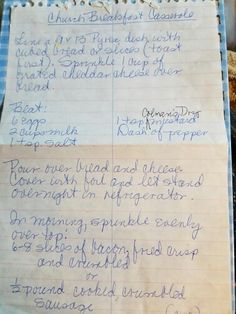 Church Breakfast Casserole
Line a 9 x 13 Pyrex dish with
cubed bread or slices (toast
first). Sprinkle 1 cup of
grated cheddar cheese over
bread.
Beat: Colman's Dry
6 eggs 1 tsp mustard
2 cups milk Dash of pepper
1 tsp salt
Pour over bread and cheese
Cover with foil and let stand
overnight in refrigerator.
In morning, sprinkle evenly
over top:
6-8 slices of bacon, fried crisp
and crumbled
or
½ pound cooked, crumbled
sausage